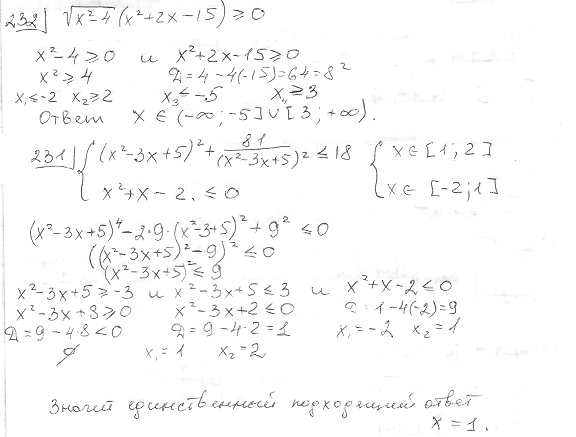 232] √x²-4 (x²+2x-15) ⩾ 0
x²-4 ⩾ 0 и x²+2x-15 ⩾ 0
x² ⩾ 4 Д = 4-4(-15) = 64 = 8²
x₁ ⩽ -2 x₂ ⩾ 2 x₃ ⩽ -5 x₄ ⩾ 3
Ответ x ∈ (-∞; -5] ∪ [3; +∞).
231] { (x²-3x+5)² + 81/(x²-3x+5)² ⩽ 18 { x ∈ [1; 2]
x²+x-2 ⩽ 0 x ∈ [-2; 1]
(x²-3x+5)⁴ - 2·9·(x²-3+5)² + 9² ⩽ 0
((x²-3x+5)² - 9)² ⩽ 0
(x²-3x+5)² ⩽ 9
x²-3x+5 ⩾ -3 и x²-3x+5 ⩽ 3 и x²+x-2 ⩽ 0
x²-3x+8 ⩾ 0 x²-3x+2 ⩽ 0 Д = 1-4(-2) = 9
Д = 9-4·8 < 0 Д = 9-4·2 = 1 x₁ = -2 x₂ = 1
∅ x₁ = 1 x₂ = 2
Значит единственный подходящий ответ
x = 1.